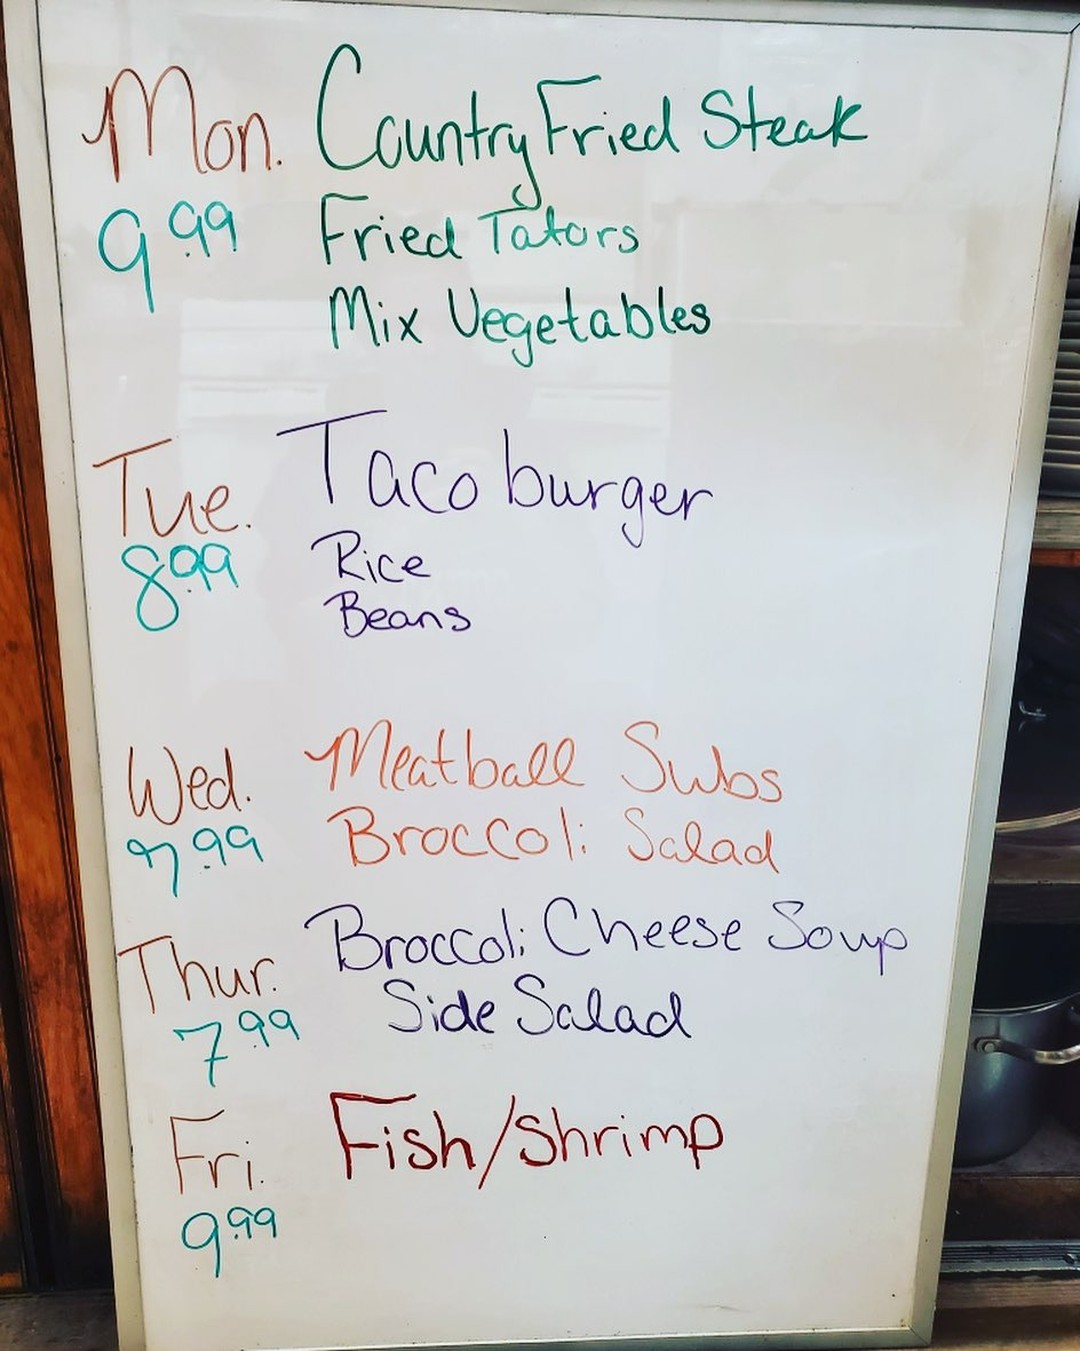 Mon. Country Fried Steak
9.99 Fried Tators
Mix Vegetables
Tue. Taco burger
8.99 Rice
Beans
Wed. Meatball Subs
7.99 Broccoli Salad
Thur. Broccoli Cheese Soup
7.99 Side Salad
Fri. Fish/Shrimp
9.99